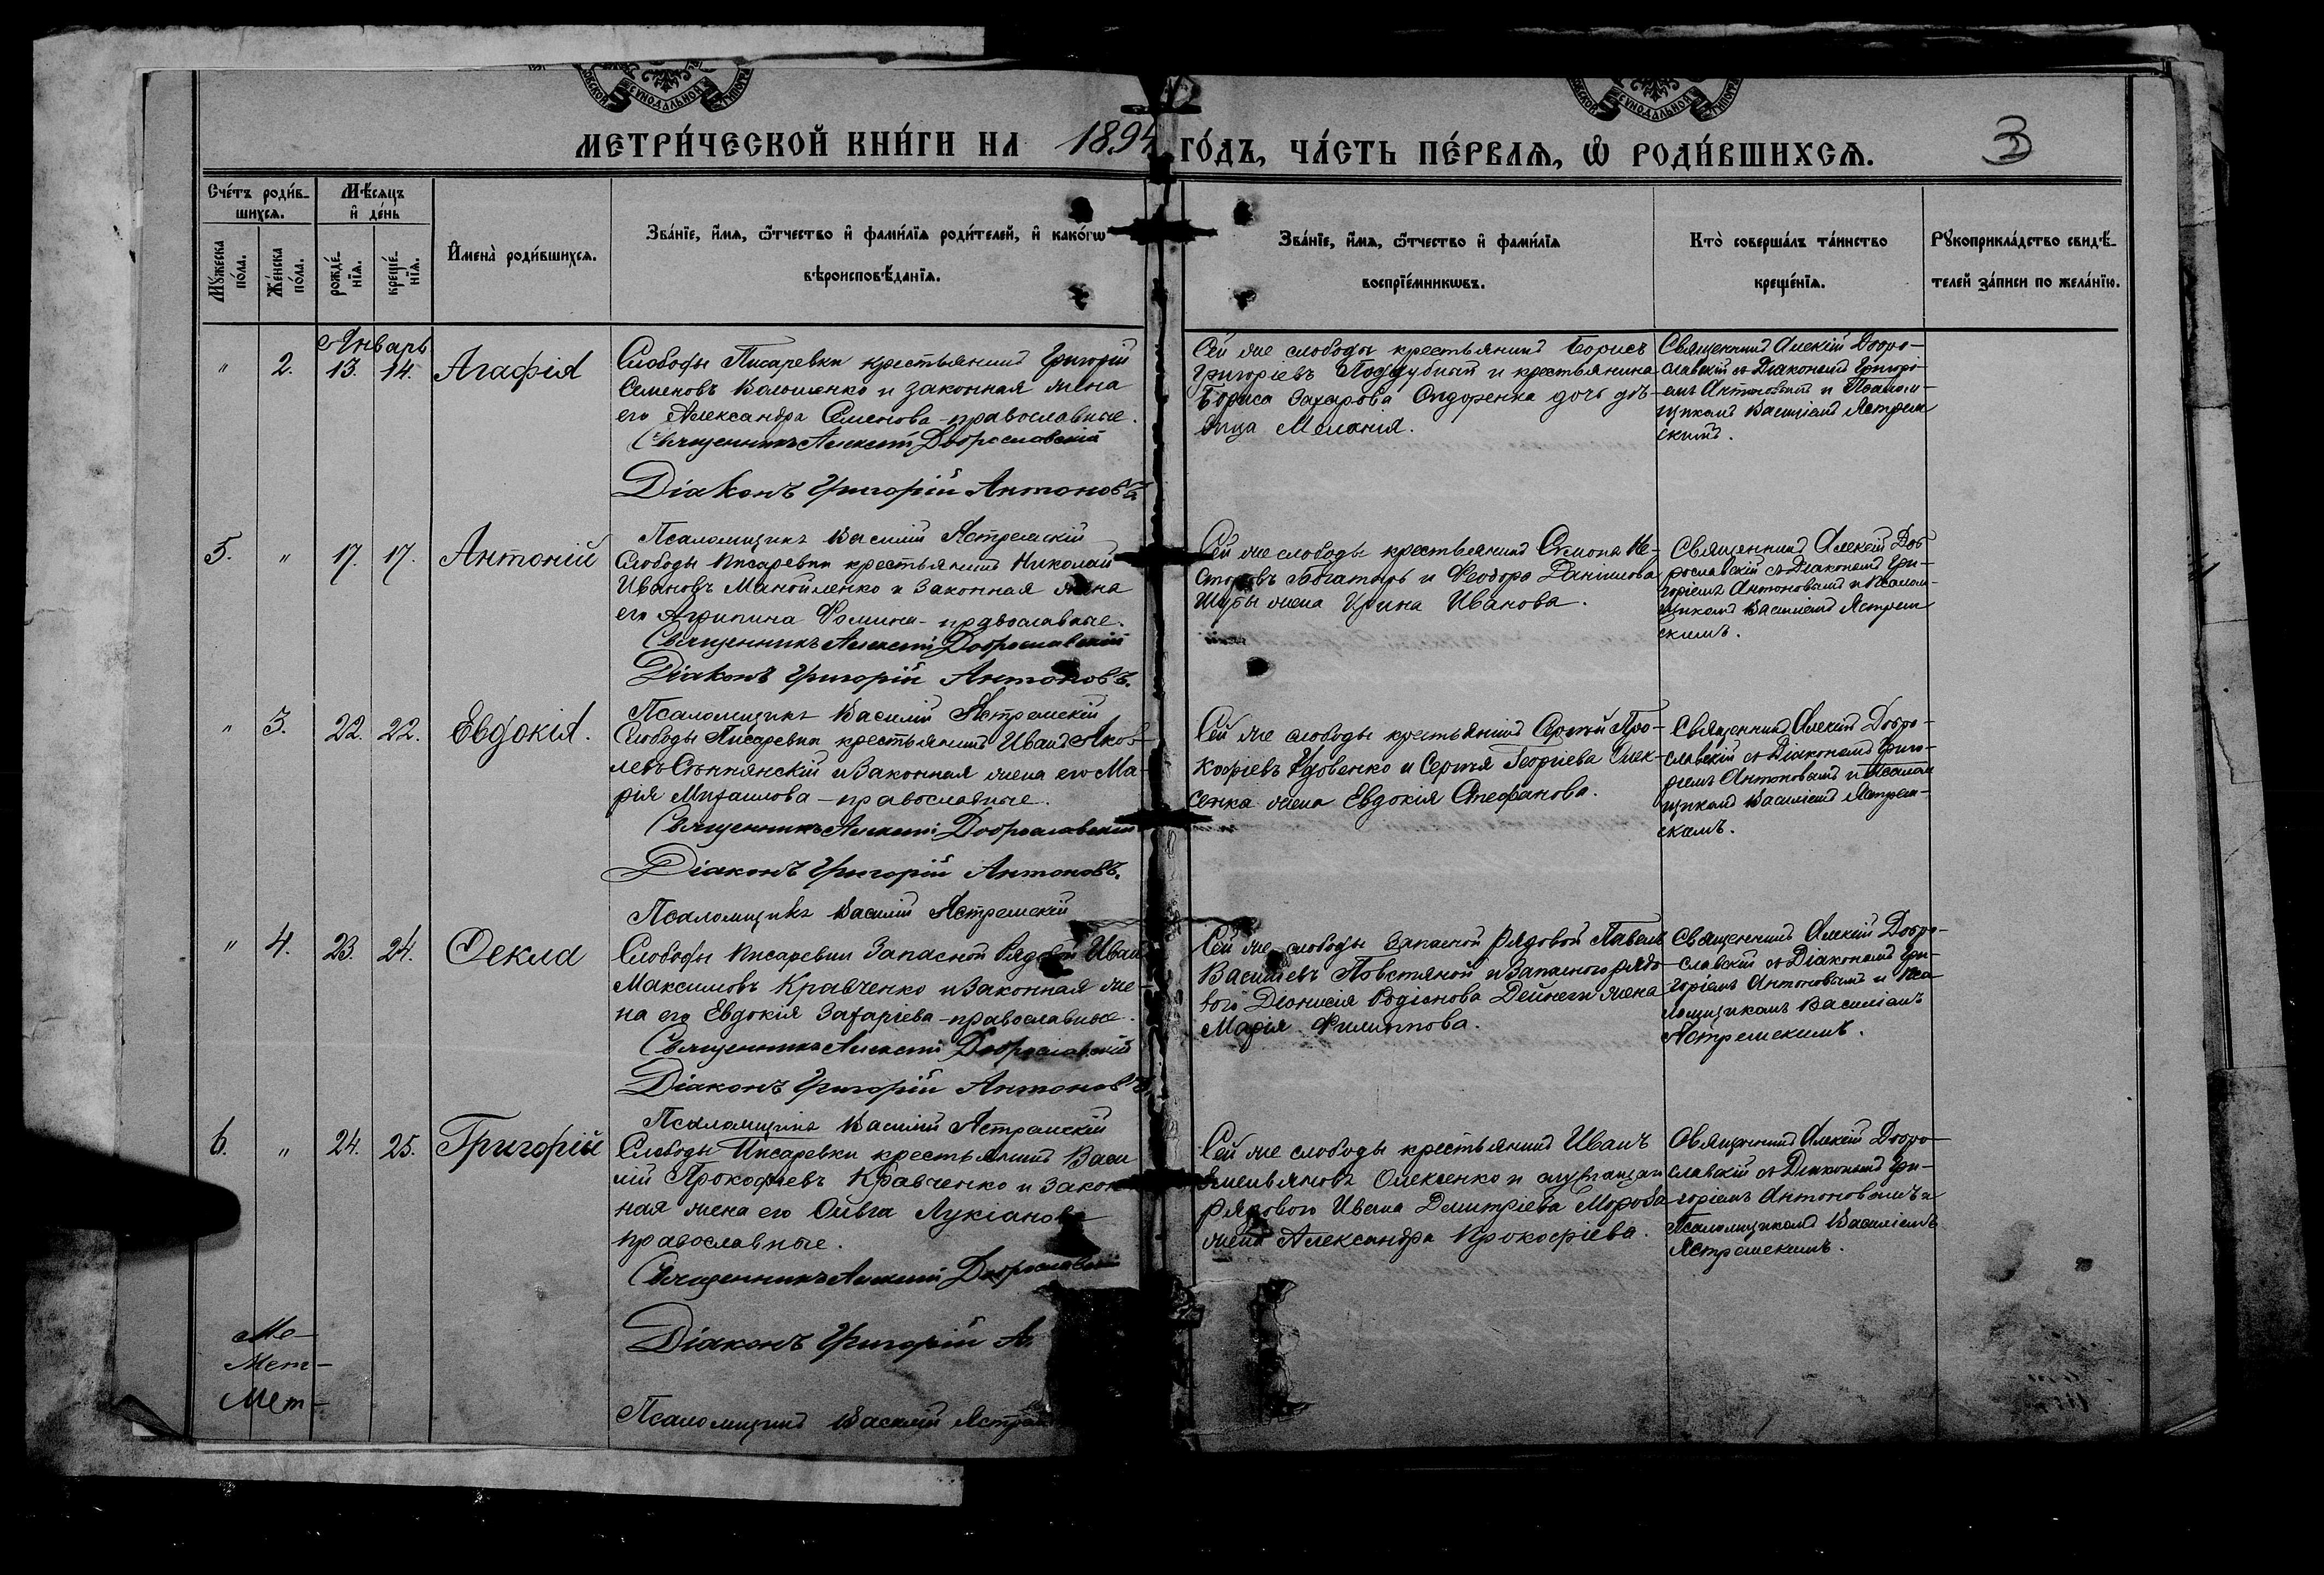 МЕТРИ́ЧЕСКОЙ КНИ́ГИ НА 1894 ГО́ДЪ, ЧА́СТЬ ПЕ́РВАѦ, Ѡ҆ РОДИ́ВШИХСѦ.
3
Сче́тъ роди́в-
шихсѧ.
Мѣ́сѧцъ
и҆ де́нь
Мꙋ́жеска
по́ла.
Же́нска
по́ла.
рожде́-
нїѧ.
креще́-
нїѧ.
И҆мена̀ роди́вшихсѧ.
Зва́нїе, и҆́мѧ, ѻ҆́тчество и҆ фами́лїѧ роди́телей, и҆ како́гѡ
вѣроисповѣ́данїѧ.
Зва́нїе, и҆́мѧ, ѻ҆́тчество и҆ фами́лїѧ
воспрїе́мникѡвъ.
Кто̀ соверша́лъ та́инство
креще́нїѧ.
Рꙋкоприкла́дство свидѣ́-
телей за́писи по жела́нїю.
Январь
" 2. 13. 14. Агафія
Слободы Писаревки крестьянинъ Григорій
Семеновъ Волошенко и законная жена
его Александра Семенова - православные.
Священникъ Алексій Доброславскій
Діаконъ Григорій Антоновъ
Псаломщикъ Василій Ястремскій
Сей же слободы крестьянинъ Борисъ
Григоріевъ Поддубный и крестьянина
Бориса Захарова Сидоренка дочь дѣ-
вица Меланія.
Священникъ Алексій Добро-
славскій съ Діакономъ Григорі-
емъ Антоновымъ и Псалом-
щикомъ Василіемъ Ястрем
скимъ.
5. " 17. 17. Антоній
Слободы Писаревки крестьянинъ Николай
Ивановъ Манойленко и законная жена
его Агрипина Фомина - православные.
Священникъ Алексій Доброславскій
Діаконъ Григорій Антоновъ.
Псаломщикъ Василій Ястремскій
Сей же слободы крестьянинъ Симонъ Не-
сторовъ Богатырь и Феодора Даніилова
Шубы жена Ирина Иванова.
Священникъ Алексій Доб
рославскій съ Діакономъ Гри-
горіемъ Антоновымъ и Псалом-
щикомъ Василіемъ Ястрем
скимъ.
" 3. 22. 22. Евдокія.
Слободы Писаревки крестьянинъ Иванъ Яков-
левъ и Законная жена его Ма-
рія Михаилова - православные.
Священникъ Алексій Доброславскій
Діаконъ Григорій Антоновъ.
Псаломщикъ Василій Ястремскій
Сей же слободы крестьянинъ Сергѣй Про-
кофіевъ Удовенко и Сергѣя Георгіева Олек-
сенка жена Евдокія Стефанова.
Священникъ Алексій Добро-
славскій съ Діакономъ Григо-
ріемъ Антоновымъ и Псалом
щикомъ Василіемъ Ястрем-
скимъ.
" 4. 23. 24. Ѳекла
Слободы Писаревки Запасной Рядовой Иванъ
Максимовъ Кравченко и Законная же-
на его Евдокія Захаріева - православные.
Священникъ Алексій Доброславскій
Діаконъ Григорій Антоновъ,
Псаломщикъ Василій Ястремскій
Сей же слободы Запасной Рядовой Павелъ
Василіевъ Повстяной и Запасного рядо-
вого Діонисія Родіонова Дейнеги жена
Марія Филиппова.
Священникъ Алексій Добро-
славскій съ Діакономъ Гри-
горіемъ Антоновымъ и Пса
ломщикомъ Василіемъ
Ястремскимъ.
6. " 24. 25. Григорій
Слободы Писаревки крестьянинъ Васи
лій Прокофіевъ Кравченко и Закон
ная жена его Ольга Лукіанова
православные.
Священникъ Алексій Доброславскій
Діаконъ Григорій А
Псаломщикъ Василій Ястрем
Сей же слободы крестьянинъ Иванъ
Емельяновъ Олексенко и
рядового Ивана Димитріева Мороза
жена Александра Прокофіева.
Священникъ Алексій Добро-
славскій съ Діакономъ Гри-
горіемъ Антоновымъ и
Псаломщикомъ Василіемъ
Ястремскимъ.
Ме-
Мет-
Мет-